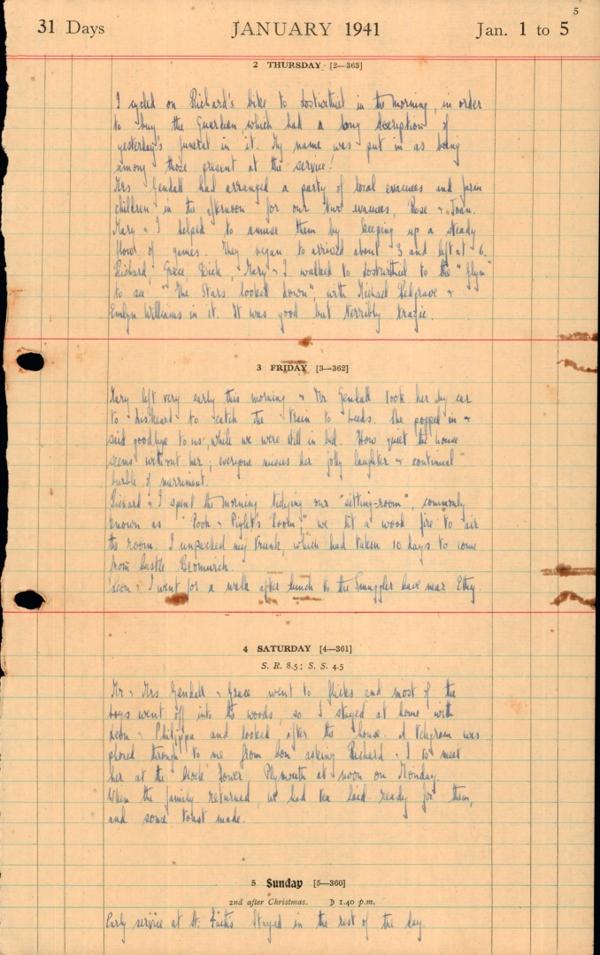 5
31 Days JANUARY 1941 Jan. 1 to 5
2 THURSDAY [2—363]
I cycled on Richard's bike to Lostwithiel in the morning, in order
to buy the Guardian which had a long description of
yesterday's funeral in it. My name was put in as being
among those present at the service!
Mrs Gendall had arranged a party of local evacuees and farm
children in the afternoon for our two evacuees, Rose + Joan.
Mary + I helped to amuse them by keeping up a steady
flow of games. They began to arrived about 3 and left at 6.
Richard, Grace, Dick, Mary + I walked to Lostwithiel to the "
to see "The Stars looked down", with Michael Redgrave +
Emlyn Williams in it. It was good but terribly tragic.
3 FRIDAY [3—362]
Mary left very early this morning + Mr Gendall took her by car
to Liskeard to catch the train to Leeds. She popped in +
said goodbye to us, while we were still in bed. How quiet the house
seems without her; everyone misses her jolly laughter + continual
of merriment.
Richard + I spent the morning tidying our "sitting-room", commonly
known as "Pooh + Piglet's Room"; we lit a wood fire to air
the room. I unpacked my trunk, which had taken 10 days to come
from Castle
+ I went for a walk after lunch to the Smuggler near
4 SATURDAY [4—361]
S. R. 8.5; S. S. 4.5
Mr + Mrs Gendall + Grace went to flicks and most of the
boys went off into the woods, so I stayed at home with
+ Philippa and looked after the house. A telegram was
phoned through to me from asking Richard + I to meet
her at the Clock Tower, Plymouth at noon on Monday.
When the family returned, we had tea laid ready for them,
and some toast made.
5 Sunday [5—360]
2nd after Christmas. ☽ 1.40 p.m.
Early service at St. Stayed in the rest of the day.